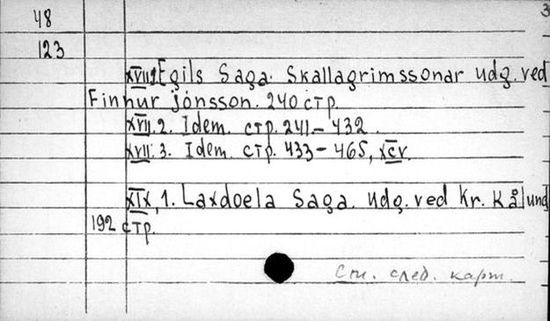 48
3
123
XVII.1 Egils Saga. Skallagrimssonar udg. ved
Finnur jónsson. 240 стр.
XVII. 2. Idem. стр. 241-432.
XVII. 3. Idem. стр. 433-465, XCV.
XIX, 1. Laxdoela Saga. udg. ved Kr. Kålund
192 стр.
См. след. карт.